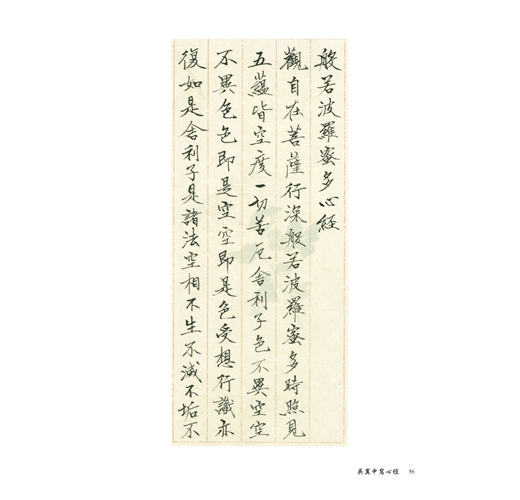 般若波羅蜜多心經
觀自在菩薩行深般若波羅蜜多時照見
五蘊皆空度一切苦厄舍利子色不異空空
不異色色即是空空即是色受想行識亦
復如是舍利子是諸法空相不生不滅不垢不
吴冀中寫心經 56